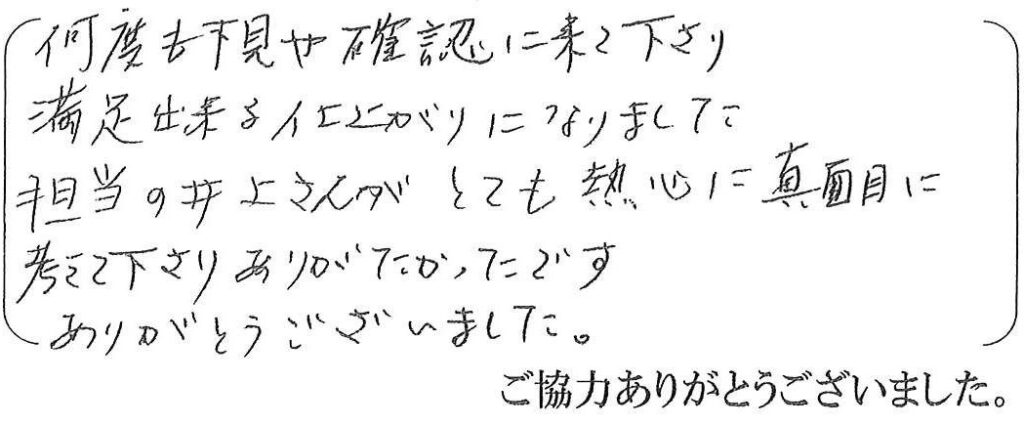 何度も下見や確認に来て下さり
満足出来る仕上がりになりました
担当の井上さんが とても 熱心に真面目に
考えて下さりありがたかったです
ありがとうございました。
ご協力ありがとうございました。